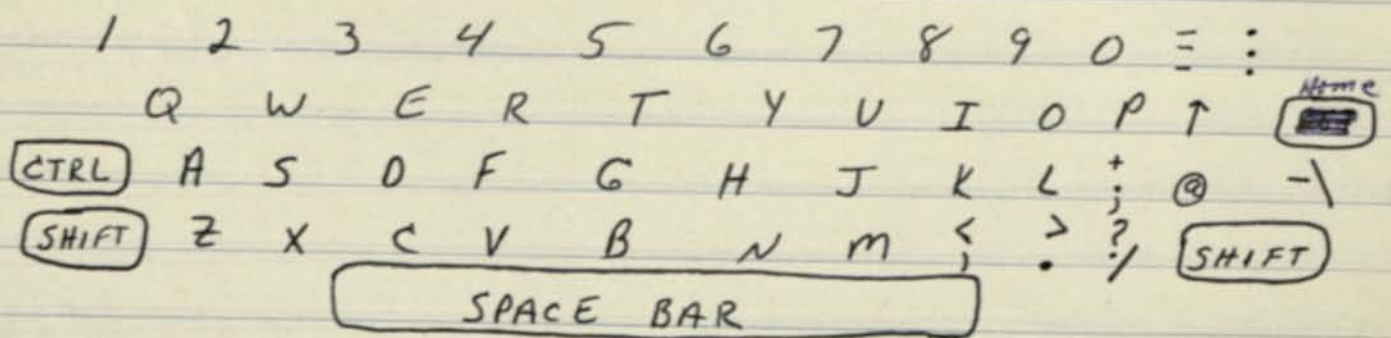 1 2 3 4 5 6 7 8 9 0 = - * :
Q W E R T Y U I O P ↑ Home
CTRL A S D F G H J K L + ; @ - \
SHIFT Z X C V B N M < , > . ? / SHIFT
SPACE BAR